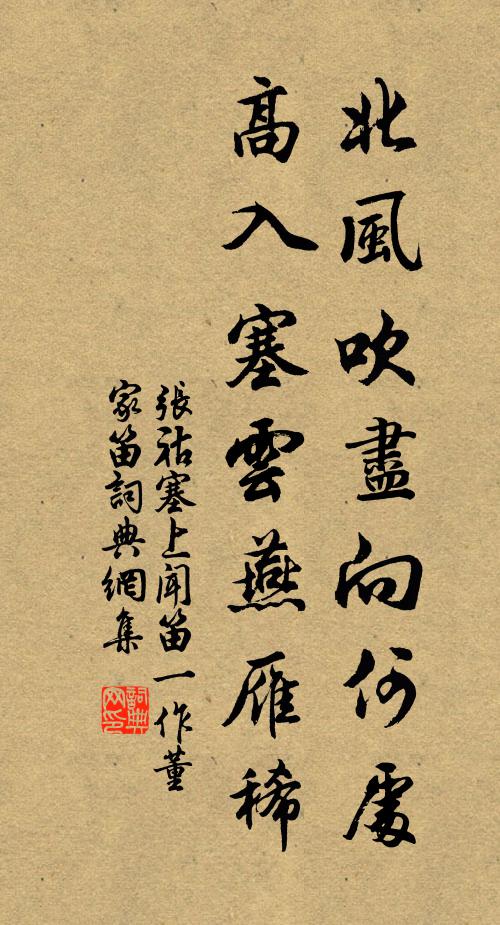 北風吹盡向何處
高入塞雲燕雁稀
張祜塞上聞笛一作董
家笛詞典網集
詞典网印